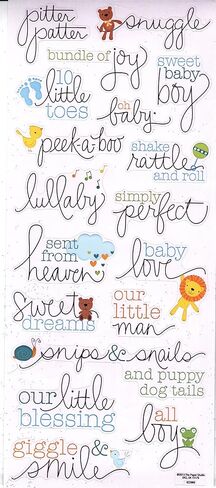 pitter patter
snuggle
bundle of joy
sweet baby boy
10 little toes
oh baby
peek-a-boo
shake rattle and roll
lullaby
simply perfect
sent from heaven
baby love
sweet dreams
our little man
snips & snails
and puppy dog tails
our little blessing
all boy
giggle & smile